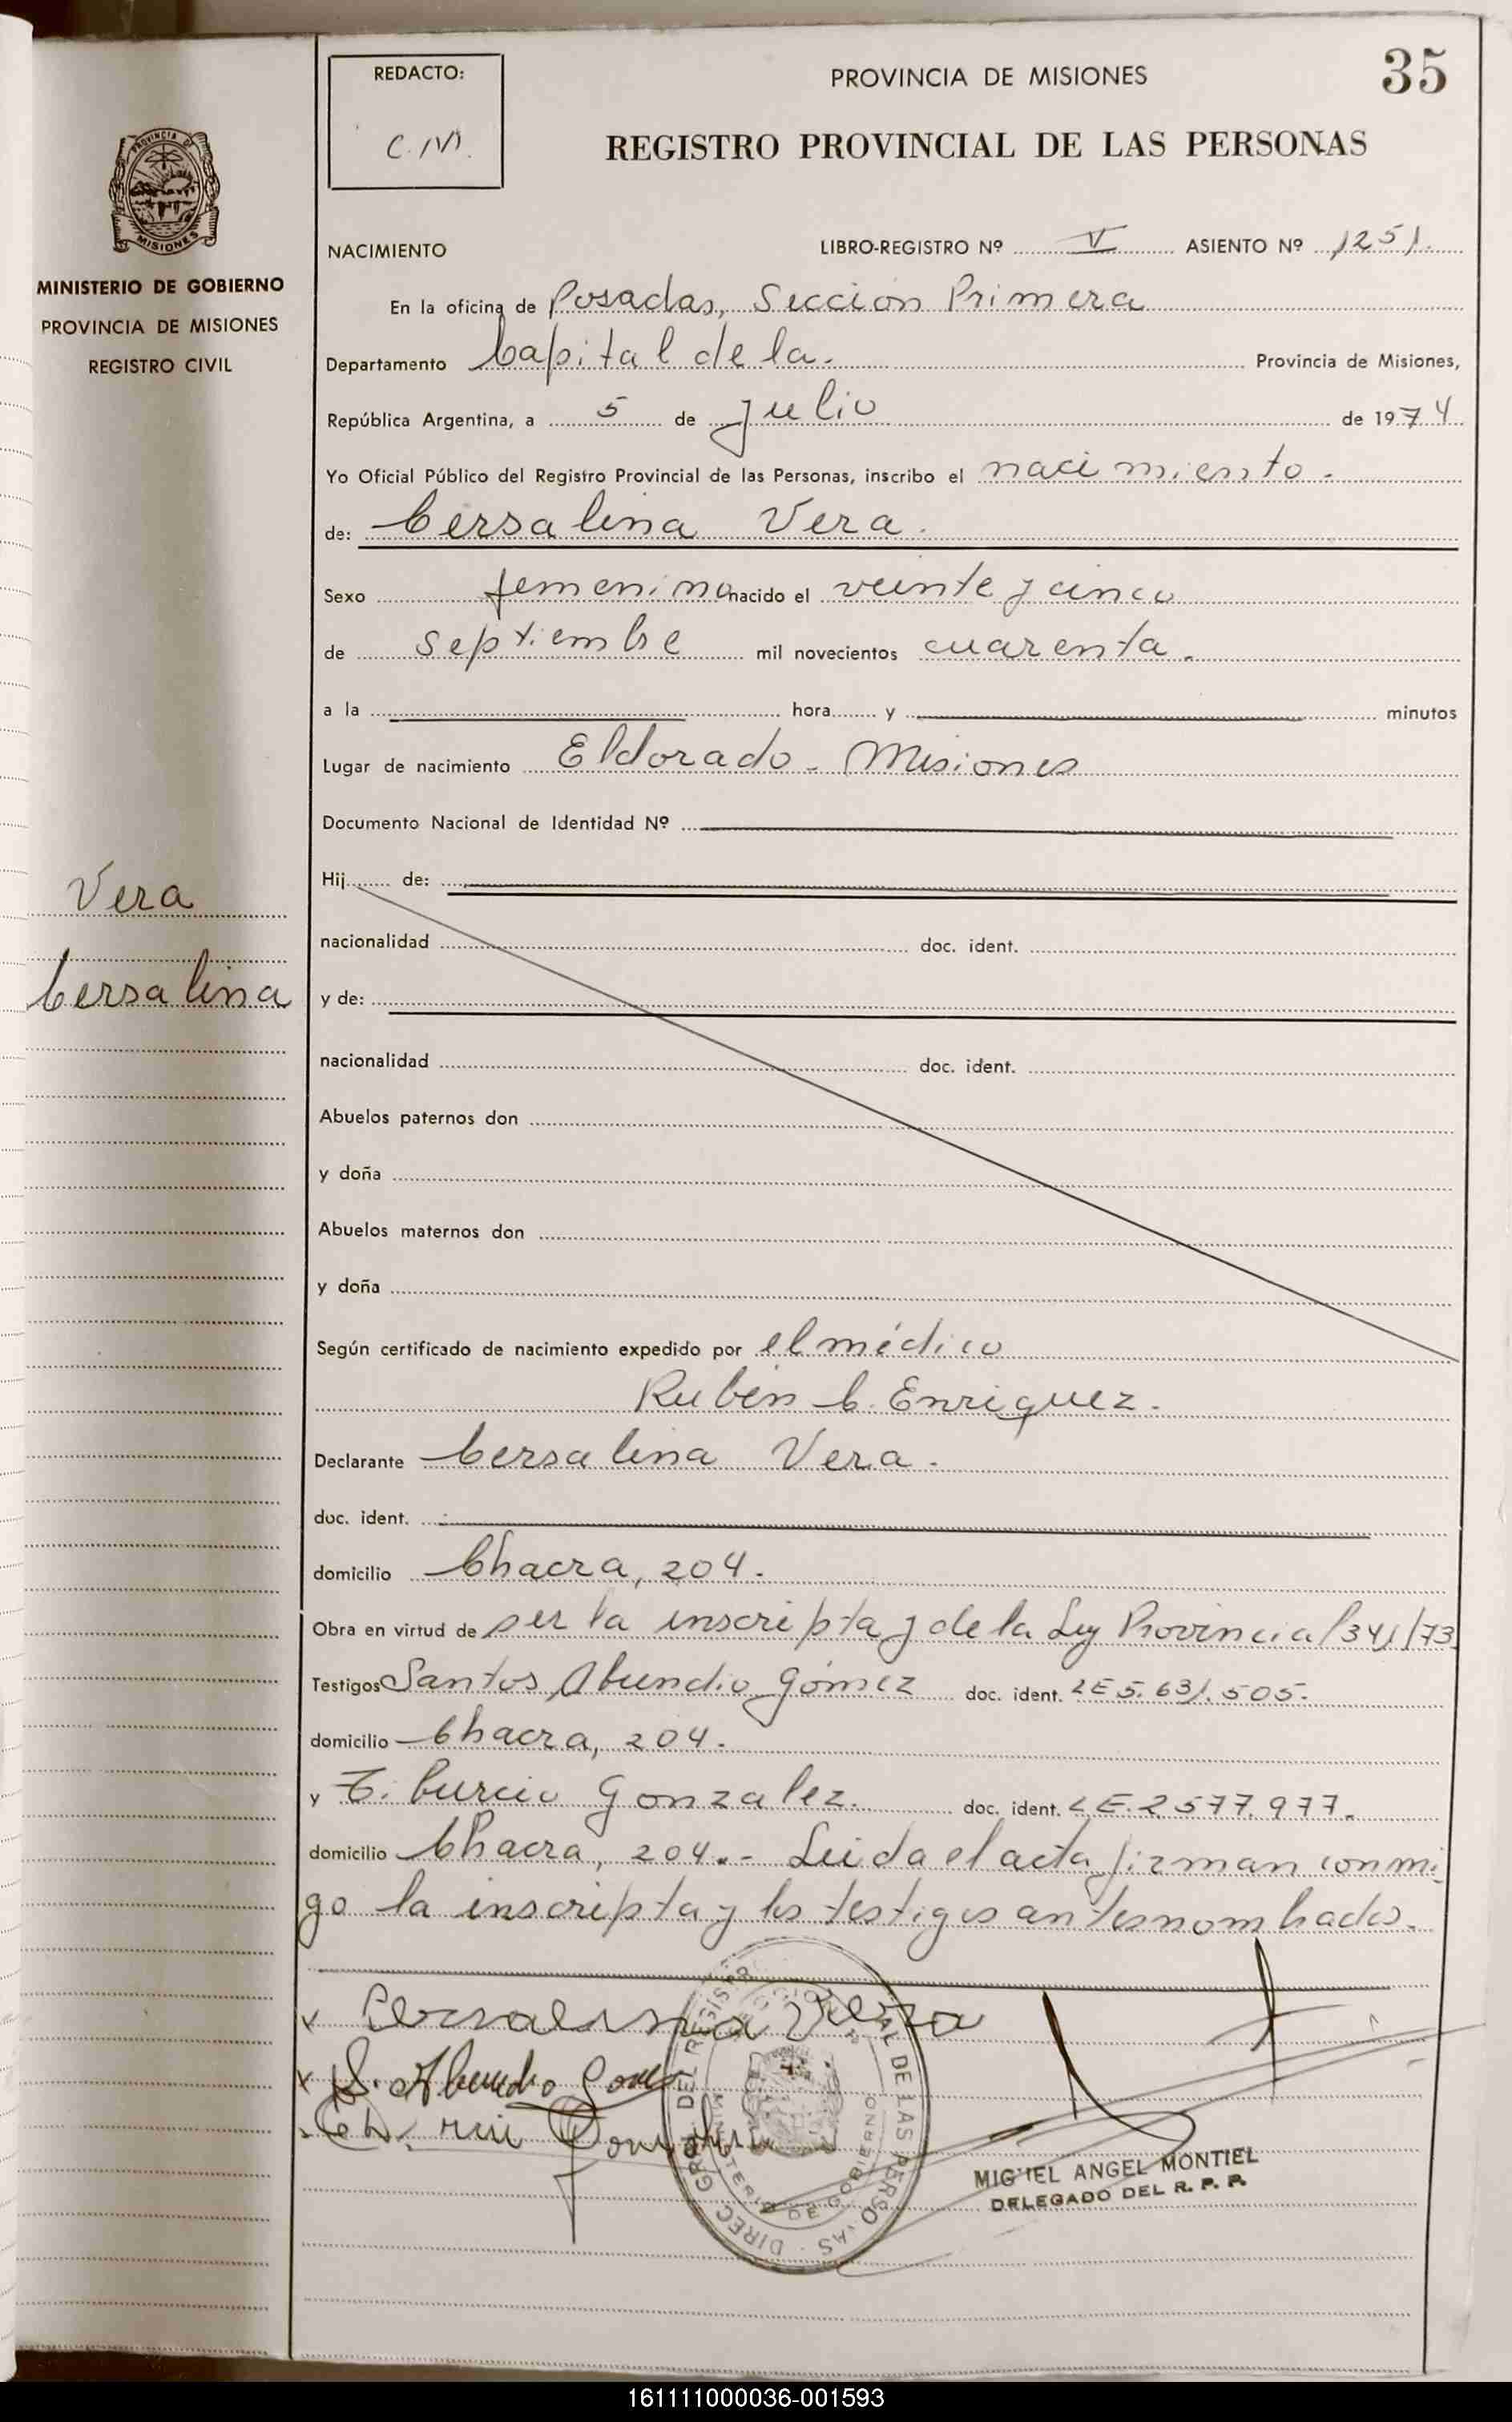 35
REDACTO:
C.M.
PROVINCIA DE MISIONES
REGISTRO PROVINCIAL DE LAS PERSONAS
PROVINCIA DE
MISIONES
MINISTERIO DE GOBIERNO
PROVINCIA DE MISIONES
REGISTRO CIVIL
NACIMIENTO LIBRO-REGISTRO Nº V ASIENTO Nº 1251.
En la oficina de Posadas, Sección Primera
Departamento Capital de la. Provincia de Misiones,
República Argentina, a 5 de julio de 1974
Yo Oficial Público del Registro Provincial de las Personas, inscribo el nacimiento.
de: Cersalina Vera.
Sexo femenino nacido el veinte y cinco
de septiembre mil novecientos cuarenta.
a la hora y minutos
Lugar de nacimiento Eldorado - Misiones
Documento Nacional de Identidad Nº
Hij de:
Vera
Cersalina
nacionalidad doc. ident.
y de:
nacionalidad doc. ident.
Abuelos paternos don
y doña
Abuelos maternos don
y doña
Según certificado de nacimiento expedido por el médico
Rubén C. Enriquez.
Declarante Cersalina Vera.
doc. ident.
domicilio Chacra, 204.
Obra en virtud de ser la inscripta y de la Ley Provincial 341/73
Testigos Santos Abundio Gómez doc. ident. LE 5.631.505.
domicilio Chacra, 204.
y Tiburcio Gonzalez. doc. ident. LE. 2.577.977.
domicilio Chacra, 204.- Leida el acta firman conmi
go la inscripta y los testigos antesnombrados.
Cersalina Vera
S. Abundio Gomez
Gonzalez
DIREC. GRAL. DEL REGISTRO PROVINCIAL DE LAS PERSONAS
MINISTERIO DE GOBIERNO
MIGUEL ANGEL MONTIEL
DELEGADO DEL R. P. P.
161111000036-001593